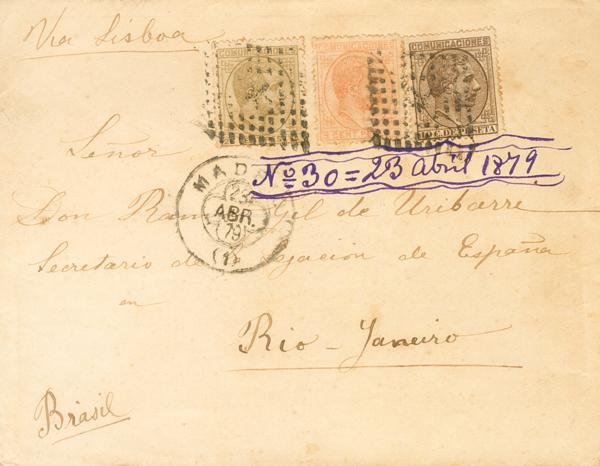 Via Lisboa
COMUNICACIONES
COMUNICACIONES
COMUNICACIONES
DE PESETA
Señor
Nº 30 = 23 Abril 1879
MAD
23
ABR.
79
(1)
Don Ram Gil de Uribarre
Secretario de gacion de España
en
Rio-Janeiro
Brasil